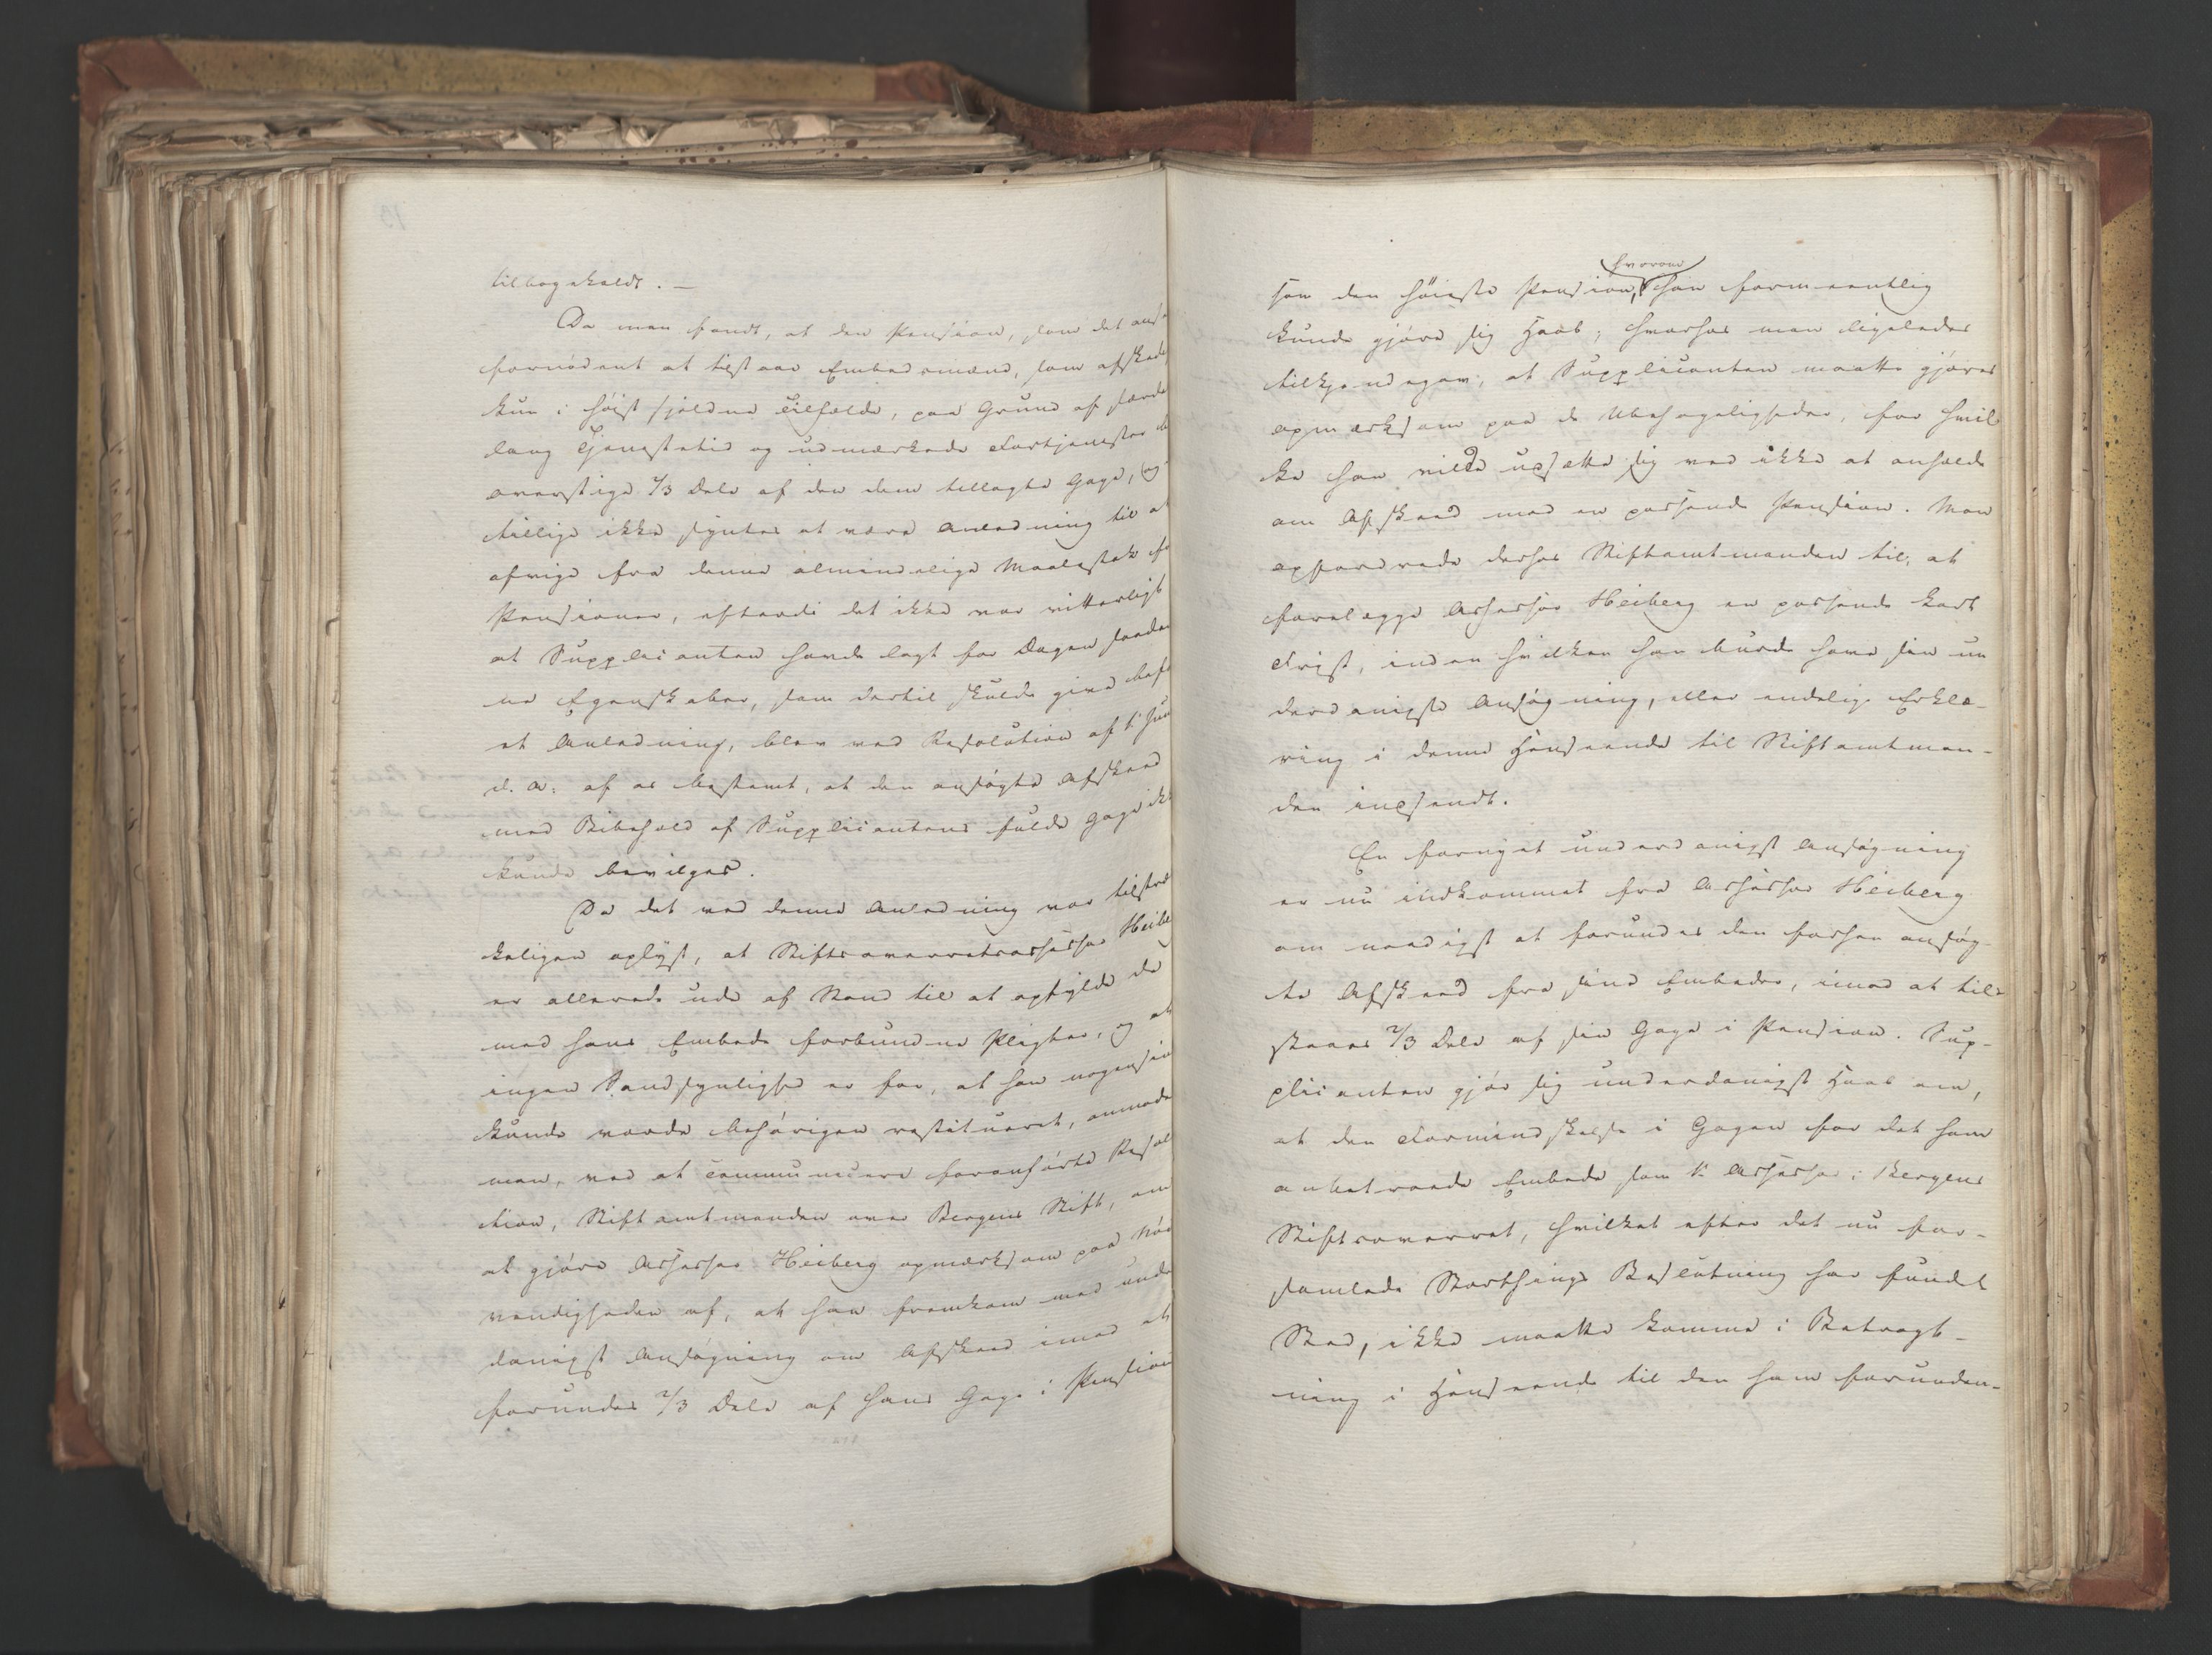 tilbagekaldt. —
Da man fandt, at den Pension, som det ans
fornødent at tilstaae Embedsmænd, som afskedi
kun i høist sjeldne Tilfælde, paa Grund af særde
lang Tjenestetid og udmærkede Fortjenester
overstige 2/3 Dele af den dem tillagte Gage, og
tillige ikke syntes at være Anledning til at
afvige fra denne almindelige Maalestok fo
Pensioner, efterdi det ikke var vitterligt
at Supplicanten havde lagt for Dagen saada
ne Egenskaber, som dertil skulde give beføi
et Anledning, blev ved Resolution af 1. Jun
d. A. af os bestemt, at den ansøgte Afskeed
med Bibehold af Supplicantens fulde Gage ik
kunde bevilges.
Da det ved denne Anledning var tilstræ
keligen oplyst, at Stiftsoverretsassessor Heibe
er allerede ude af Stand til at opfylde de
med hans Embede forbundne Pligter, og at
ingen Sandsynlighed er for, at han nogensin
kunde vorde behørigen restitueret, anmode
man, ved at communicere foranførte Resol
tion, Stiftamtmanden over Bergens Stift, om
at gjøre Assessor Heiberg opmærksom paa Nød
vendigheden af, at han fremkom med unde
danigst Ansøgning om Afskeed imod at
forundes 2/3 Dele af hans Gage i Pension
hvorom
som den høieste Pension, han formeentlig
kunde gjøre sig Haab, hvorhos man ligeledes
tilkjendegav, at Supplicanten maatte gjøres
opmærksom paa de Ubehageligheder, for hvil
ke han vilde udsætte sig ved ikke at anholde
om Afskeed med en passende Pension. Man
opfordrede derhos Stiftamtmanden til, at
forelægge Assessor Heiberg en passende kort
Frist, inden hvilken han burde have sin un
derdanigste Ansøgning, eller endelige Erklæ-
ring i denne Henseende til Stiftamtman-
den indsendt.
En fornyet underdanigst Ansøgning
er nu indkommet fra Assessor Heiberg
om naadigst at forundes den forhen ansøg-
te Afskeed fra sine Embeder, imod at til-
staaes 2/3 Dele af sin Gage i Pension. Sup-
plicanten gjør sig underdanigst Haab om,
at den Formindskelse i Gagen for det ham
anbetroede Embede som 1. Assessor i Bergens
Stiftsoverret, hvilket efter det nu for-
samlede Storthings Beslutning har fundet
Sted, ikke maatte komme i Betragt-
ning i Henseende til den ham forunden-